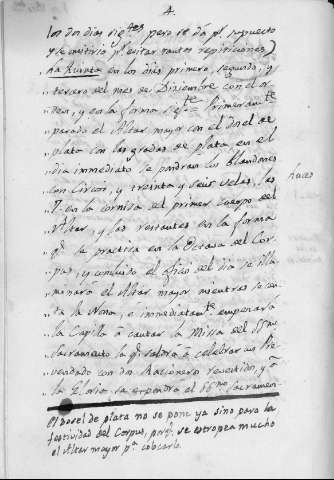 4.
los dos dias sig.tes pero se dá p.r supuesto
y se omitirá p.r evitar tantas repiticiones)
na Quinta en los dias primero, segundo, y
tercero del mes de Diciembre con el or-
den, y en la forma sig.te Primeram.te
parado el Altar mayor con el dosel de
plata con las gradas de plata en el
dia inmediato se pondran los Blandones
con Cirios, y treinta y seis velas, las
7. en la cornisa del primer cuerpo del
Altar, y las restantes en la forma
q.e se practica en la Octava del Cor-
pus, y concluido el oficio del dia se illu-
minará el Altar mayor mientras se can-
ta la Nona, e inmediatam.te empezará
la Capilla á cantar la Missa del SS.mo
Sacramento la q.e saldrá á celebrar un Pre-
vendado con dos Racioneros revestidos, y á
la Gloria se expondrá el SS.mo Sacramen-
El dosel de plata no se pone ya sino para la
festividad del Corpus, porq.e se estropea mucho
el Altar mayor p.a colocarlo.
luces